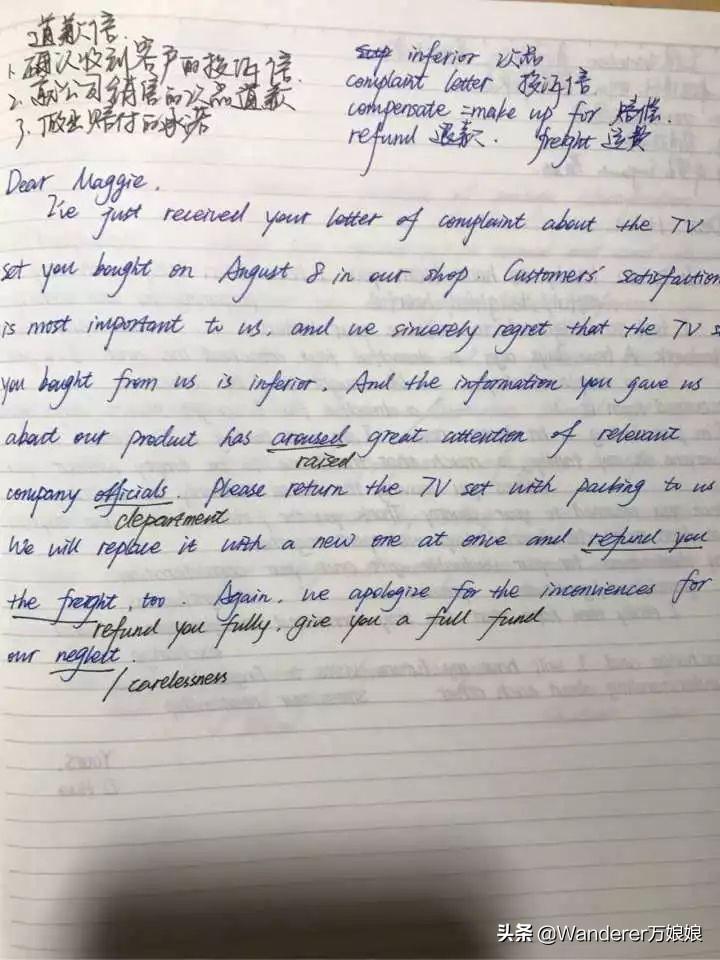 道歉信.
1. 确认收到客户的投诉信.
2. 就公司销售的次品道歉
3. 做出赔付的承诺
inferior 次品
complaint letter 投诉信
compensate = make up for 赔偿.
refund 退款. freight 运费
Dear Maggie.
I've just received your letter of complaint about the TV
set you bought on August 8 in our shop. Customers' satisfaction
is most important to us, and we sincerely regret that the TV s
you bought from us is inferior. And the information you gave us
about our product has aroused great attention of relevant
raised
company officials. Please return the TV set with packing to us
department
We will replace it with a new one at once and refund you
the freight, too. Again, we apologize for the inconviences for
refund you fully, give you a full fund
our neglect.
/ carelessness
头条 @Wanderer万娘娘